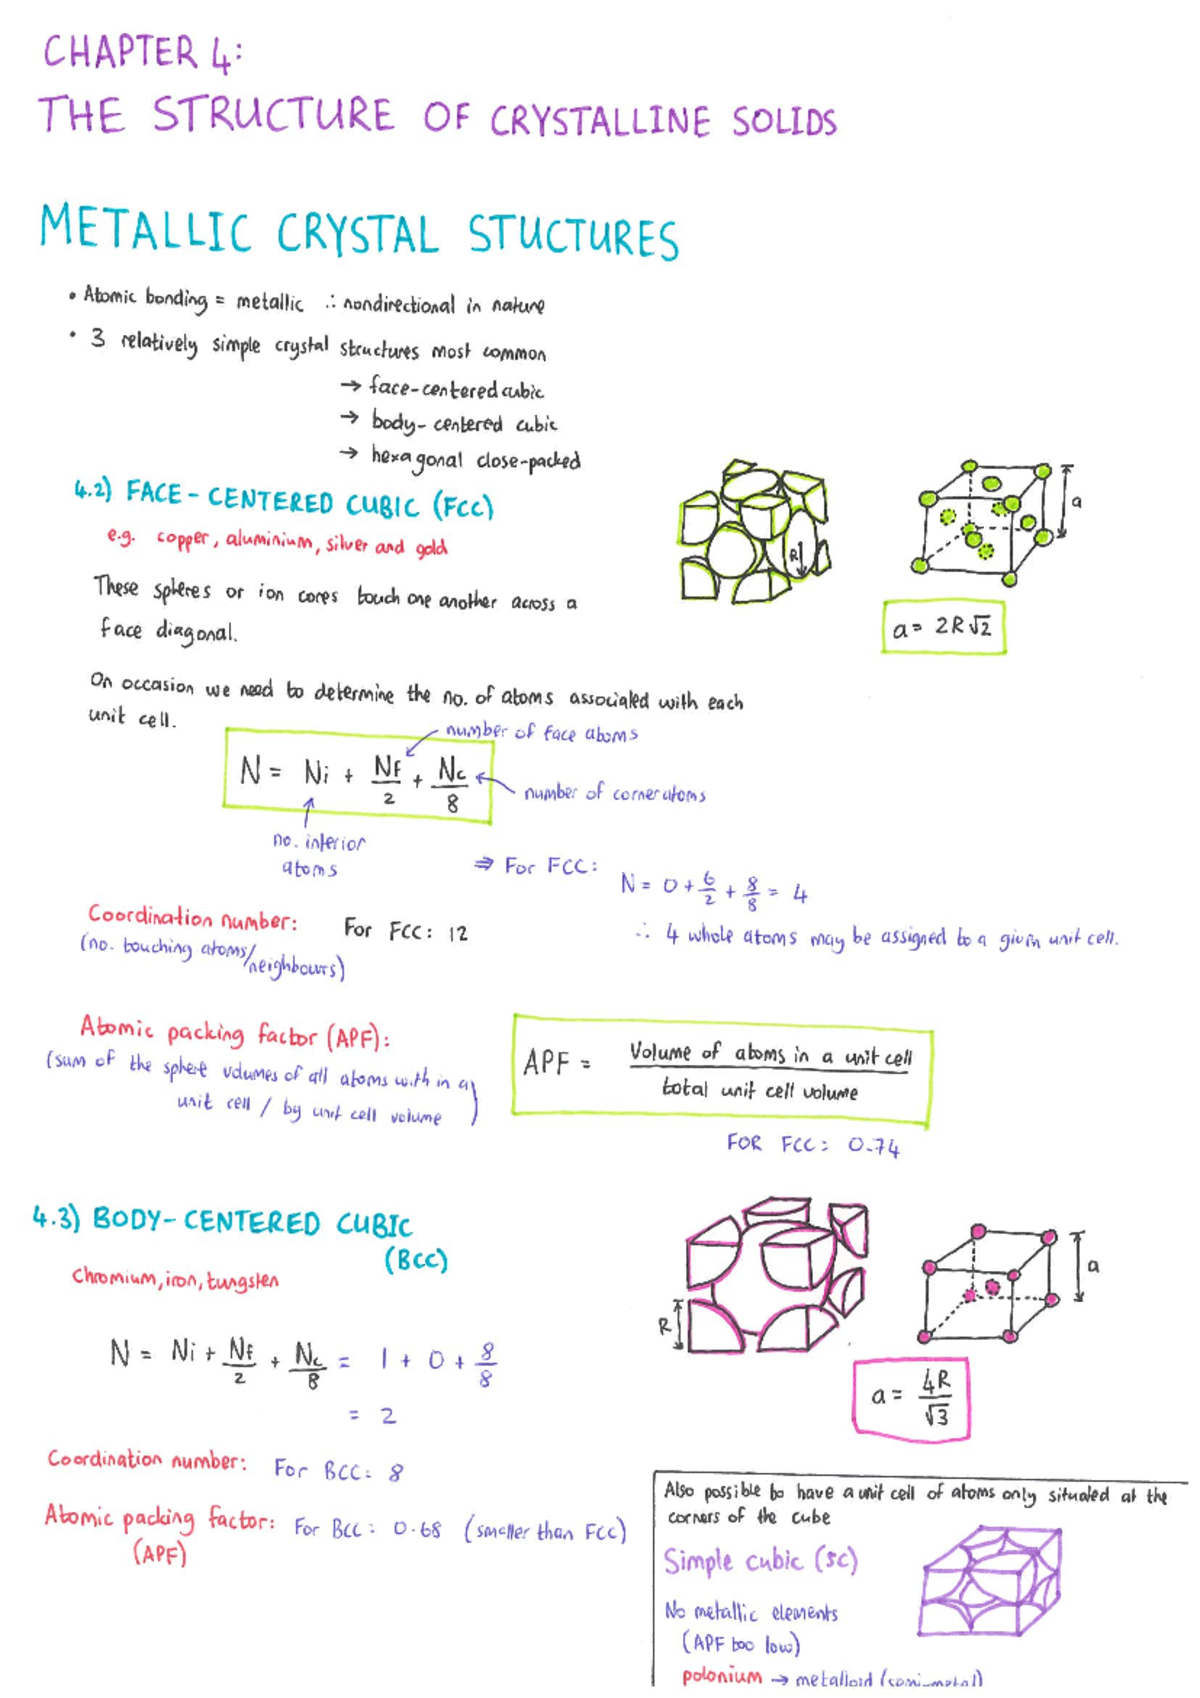 CHAPTER 4:
THE STRUCTURE OF CRYSTALLINE SOLIDS
METALLIC CRYSTAL STUCTURES
• Atomic bonding = metallic ∴ nondirectional in nature
• 3 relatively simple crystal structures most common
→ face-centered cubic
→ body-centered cubic
→ hexagonal close-packed
4.2) FACE-CENTERED CUBIC (FCC)
e.g. copper, aluminium, silver and gold
These spheres or ion cores touch one another across a
face diagonal.
R
a
a = 2R√2
On occasion we need to determine the no. of atoms associated with each
unit cell.
number of face atoms
N = Ni + Nf/2 + Nc/8
number of corner atoms
no. interior
atoms
⇒ For FCC: N = 0 + 6/2 + 8/8 = 4
∴ 4 whole atoms may be assigned to a given unit cell.
Coordination number: For FCC: 12
(no. touching atoms/
neighbours)
Atomic packing factor (APF):
(sum of the sphere volumes of all atoms with in a
unit cell / by unit cell volume)
APF = Volume of atoms in a unit cell / total unit cell volume
FOR FCC: 0.74
4.3) BODY-CENTERED CUBIC
(BCC)
Chromium, iron, tungsten
R
a
a = 4R/√3
N = Ni + Nf/2 + Nc/8 = 1 + 0 + 8/8
= 2
Coordination number: For BCC: 8
Atomic packing factor: For BCC: 0.68 (smaller than FCC)
(APF)
Also possible to have a unit cell of atoms only situated at the
corners of the cube
Simple cubic (SC)
No metallic elements
(APF too low)
polonium → metalloid (semi-metal)